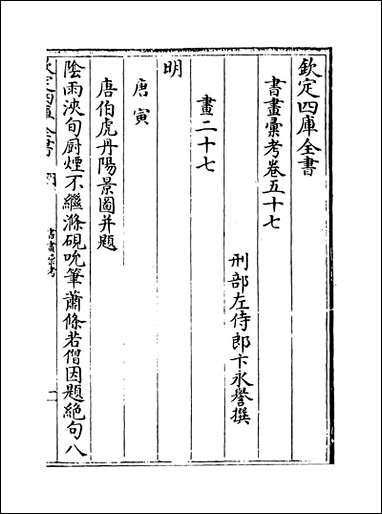 欽定四庫全書
書畫彙考卷五十七
刑部左侍郎卞永譽撰
畫二十七
明
唐寅
唐伯虎丹陽景圖并題
陰雨浹旬厨煙不繼滌硯吮筆蕭條若僧因題絶句八
欽定四庫全書
書畫彙考